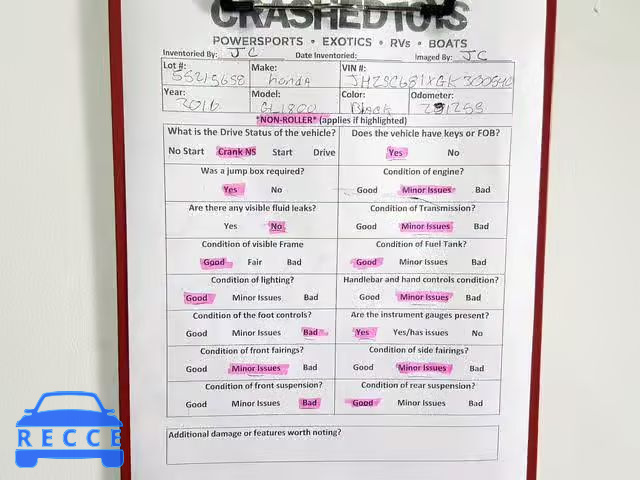 CRASHEDTOYS
POWERSPORTS • EXOTICS • RVs • BOATS
Inventoried By: JC Date Inventoried: Imaged By: JC
Lot #: Make: VIN #:
55215658 honda
Year: Model: Color: Odometer:
2016 GL1800 Black
*NON-ROLLER* (applies if highlighted)
What is the Drive Status of the vehicle? Does the vehicle have keys or FOB?
No Start Crank NS Start Drive Yes No
Was a jump box required? Condition of engine?
Yes No Good Minor Issues Bad
Are there any visible fluid leaks? Condition of Transmission?
Yes No Good Minor Issues Bad
Condition of visible Frame Condition of Fuel Tank?
Good Fair Bad Good Minor Issues Bad
Condition of lighting? Handlebar and hand controls condition?
Good Minor Issues Bad Good Minor Issues Bad
Condition of the foot controls? Are the instrument gauges present?
Good Minor Issues Bad Yes Yes/has issues No
Condition of front fairings? Condition of side fairings?
Good Minor Issues Bad Good Minor Issues Bad
Condition of front suspension? Condition of rear suspension?
Good Minor Issues Bad Good Minor Issues Bad
Additional damage or features worth noting?
RECCE